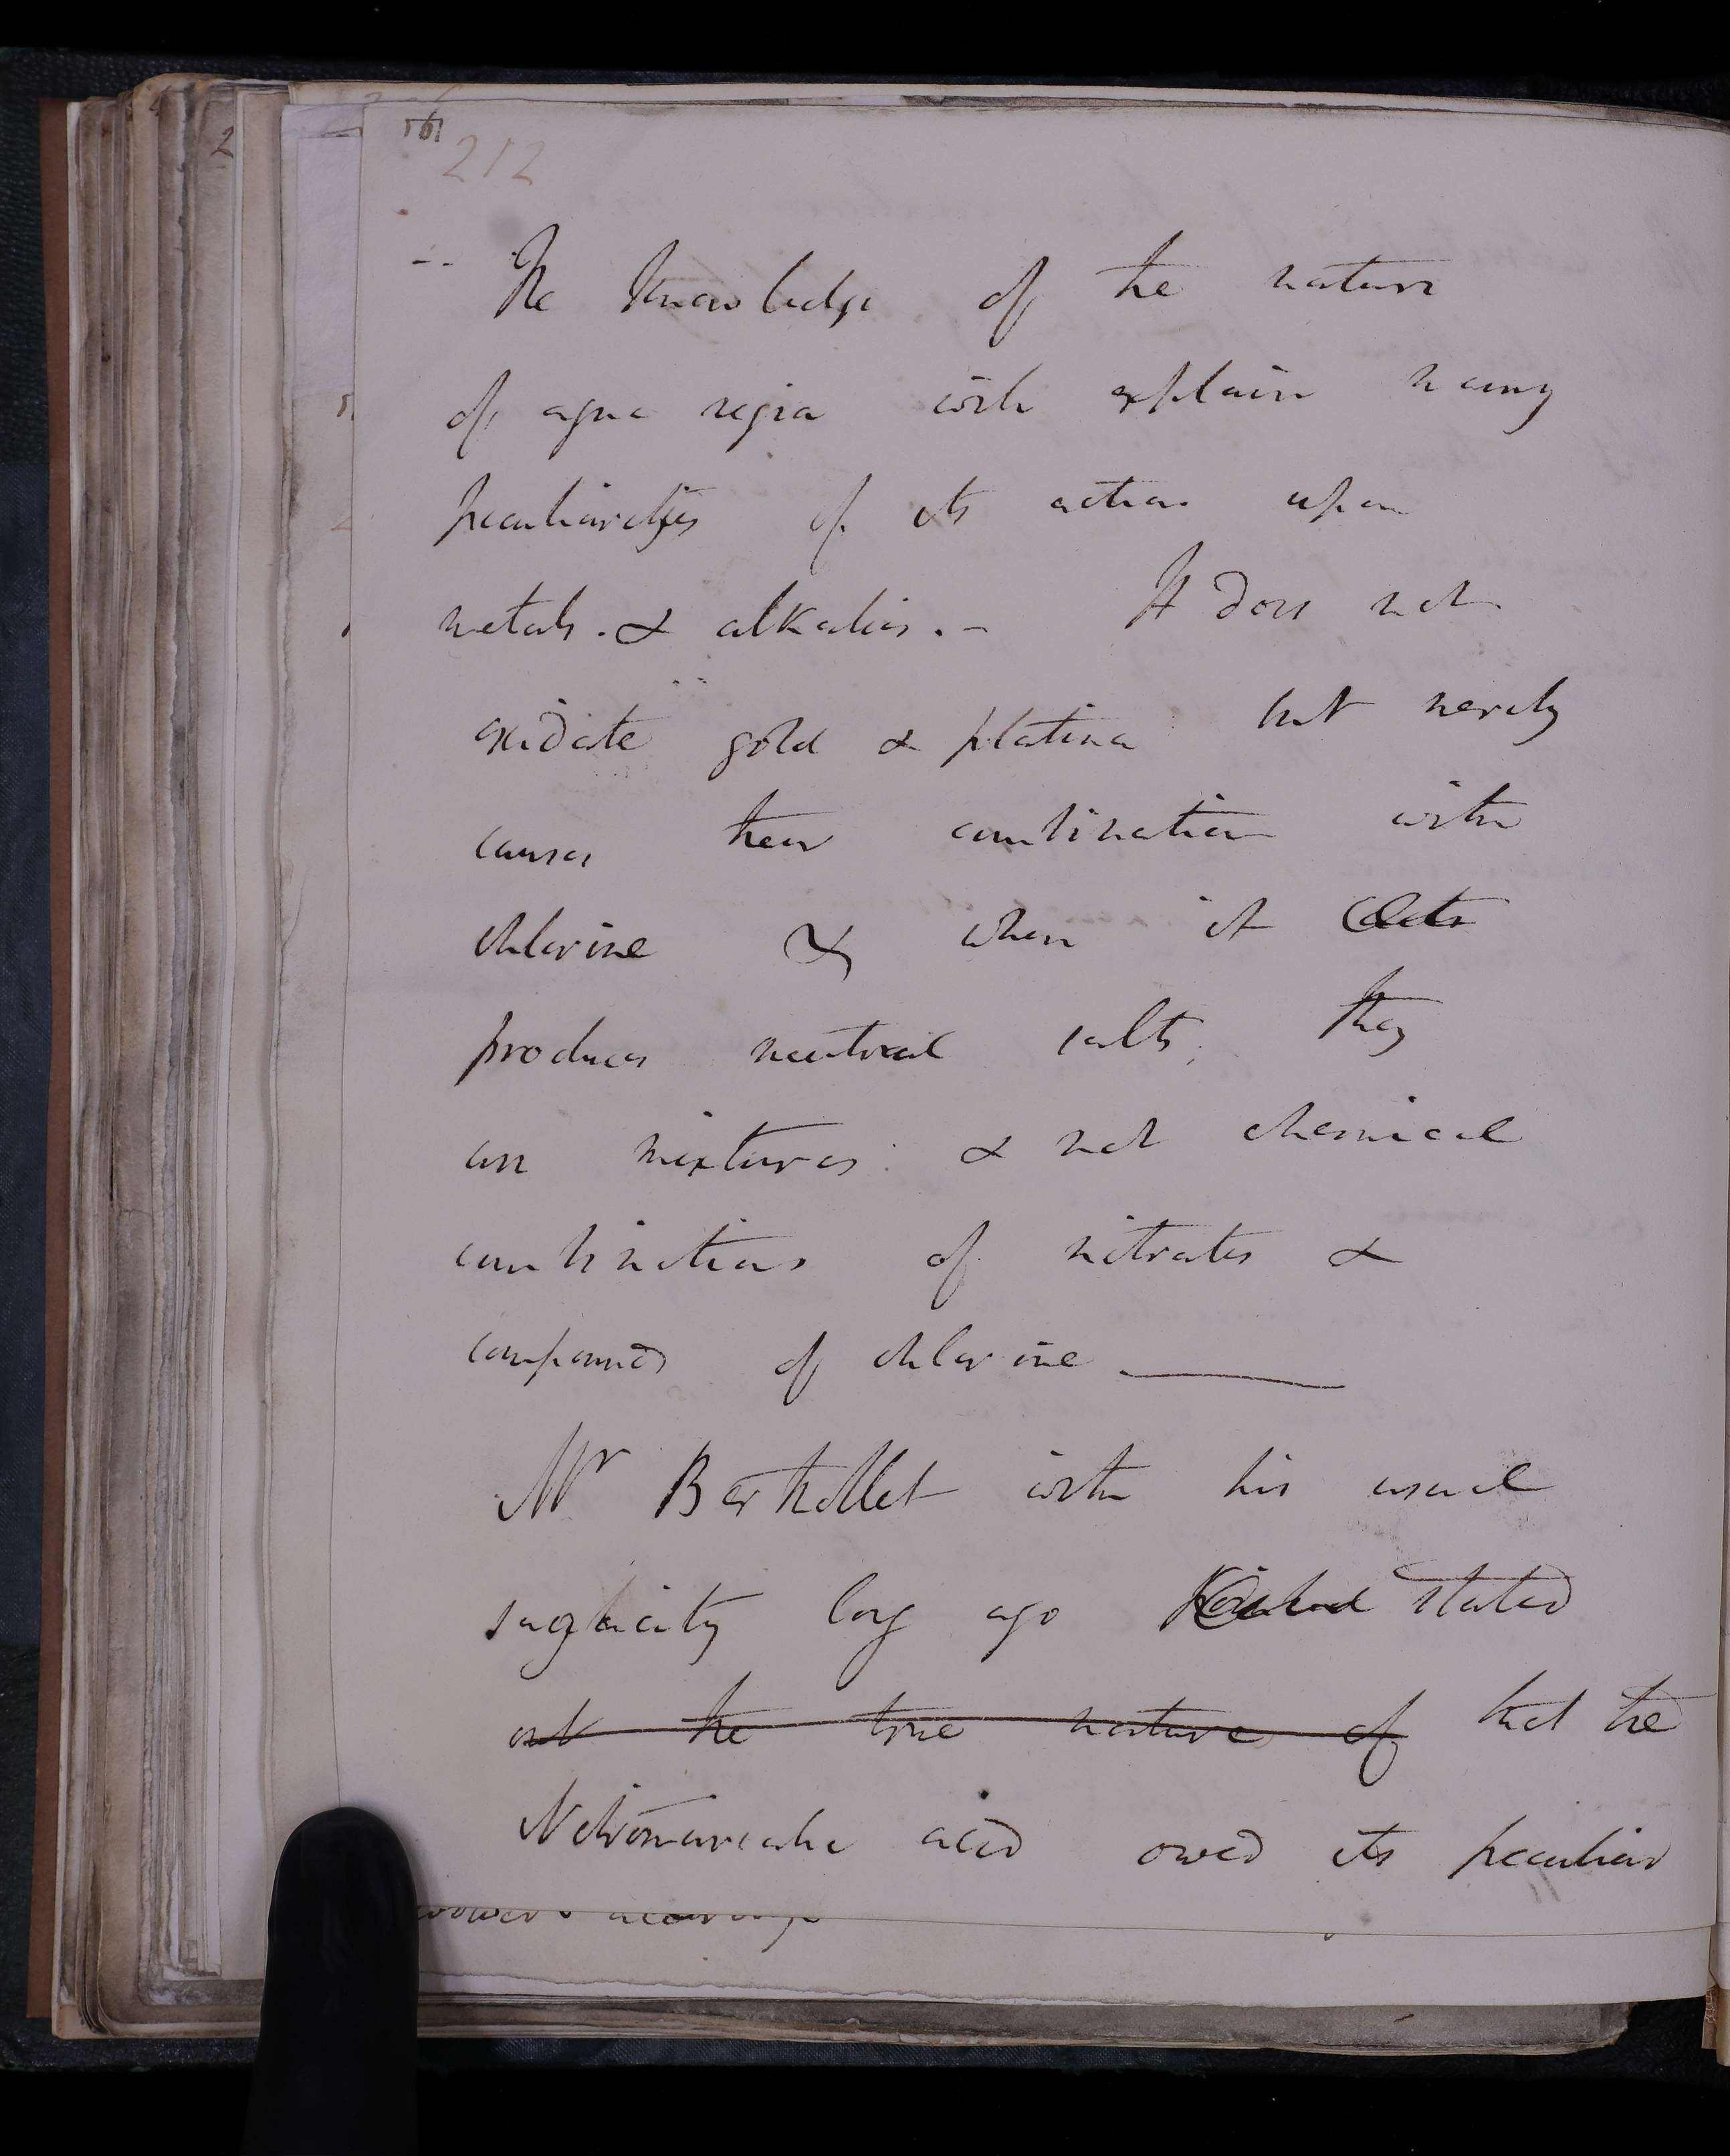 212
-- The knowledge of the nature
of aqua regia will explain many
peculiarities of its action upon
metals. & alkalies. - It does not
oxidate gold & platina but merely
causes their combination with
chlorine & when it
produces neutral salts; they
are mixtures & not chemical
combinations of nitrates &
compounds of chlorine ———
Mr Berthollet with his usual
sagacity long ago stated
out the true nature of that the
Nitromuriatic acid owed its peculiar